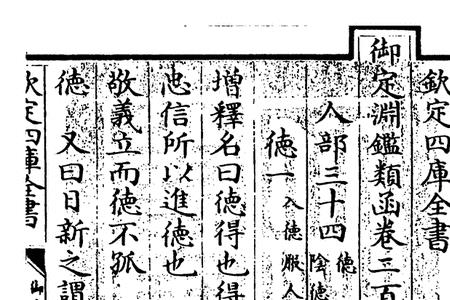 欽定四庫全書
御定淵鑑類函卷三百
人部三十四 德 陰德
德一 入德 服人
增釋名曰德得也得
忠信所以進德也
敬義立而德不孤
德 又曰日新之謂
欽定四庫全書